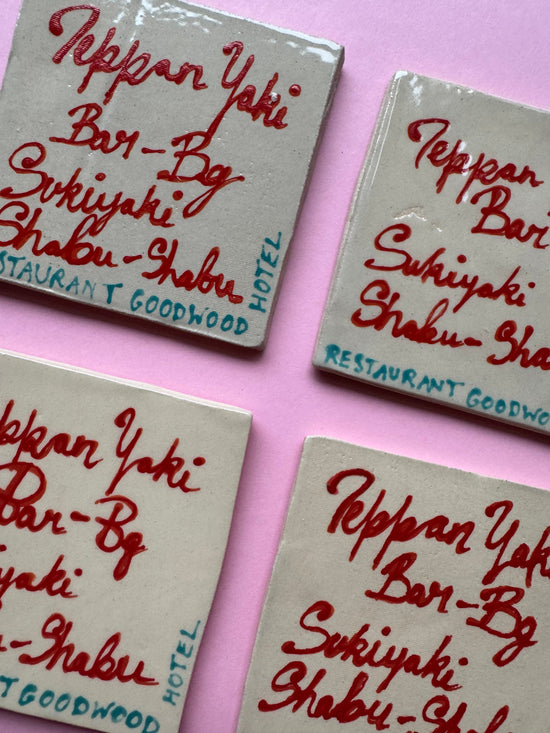 Teppan Yaki
Bar-Bg
Sukiyaki
Shabu-Shabu
STAURANT GOODWOOD
HOTEL
Teppan
Bar
Sukiyaki
Shabu-Sha
RESTAURANT GOODWO
ppan Yaki
Bar-Bg
yaki
-Shabu
T GOODWOOD
HOTEL
Teppan Yaki
Bar-Bg
Sukiyaki
Shabu-Shabu